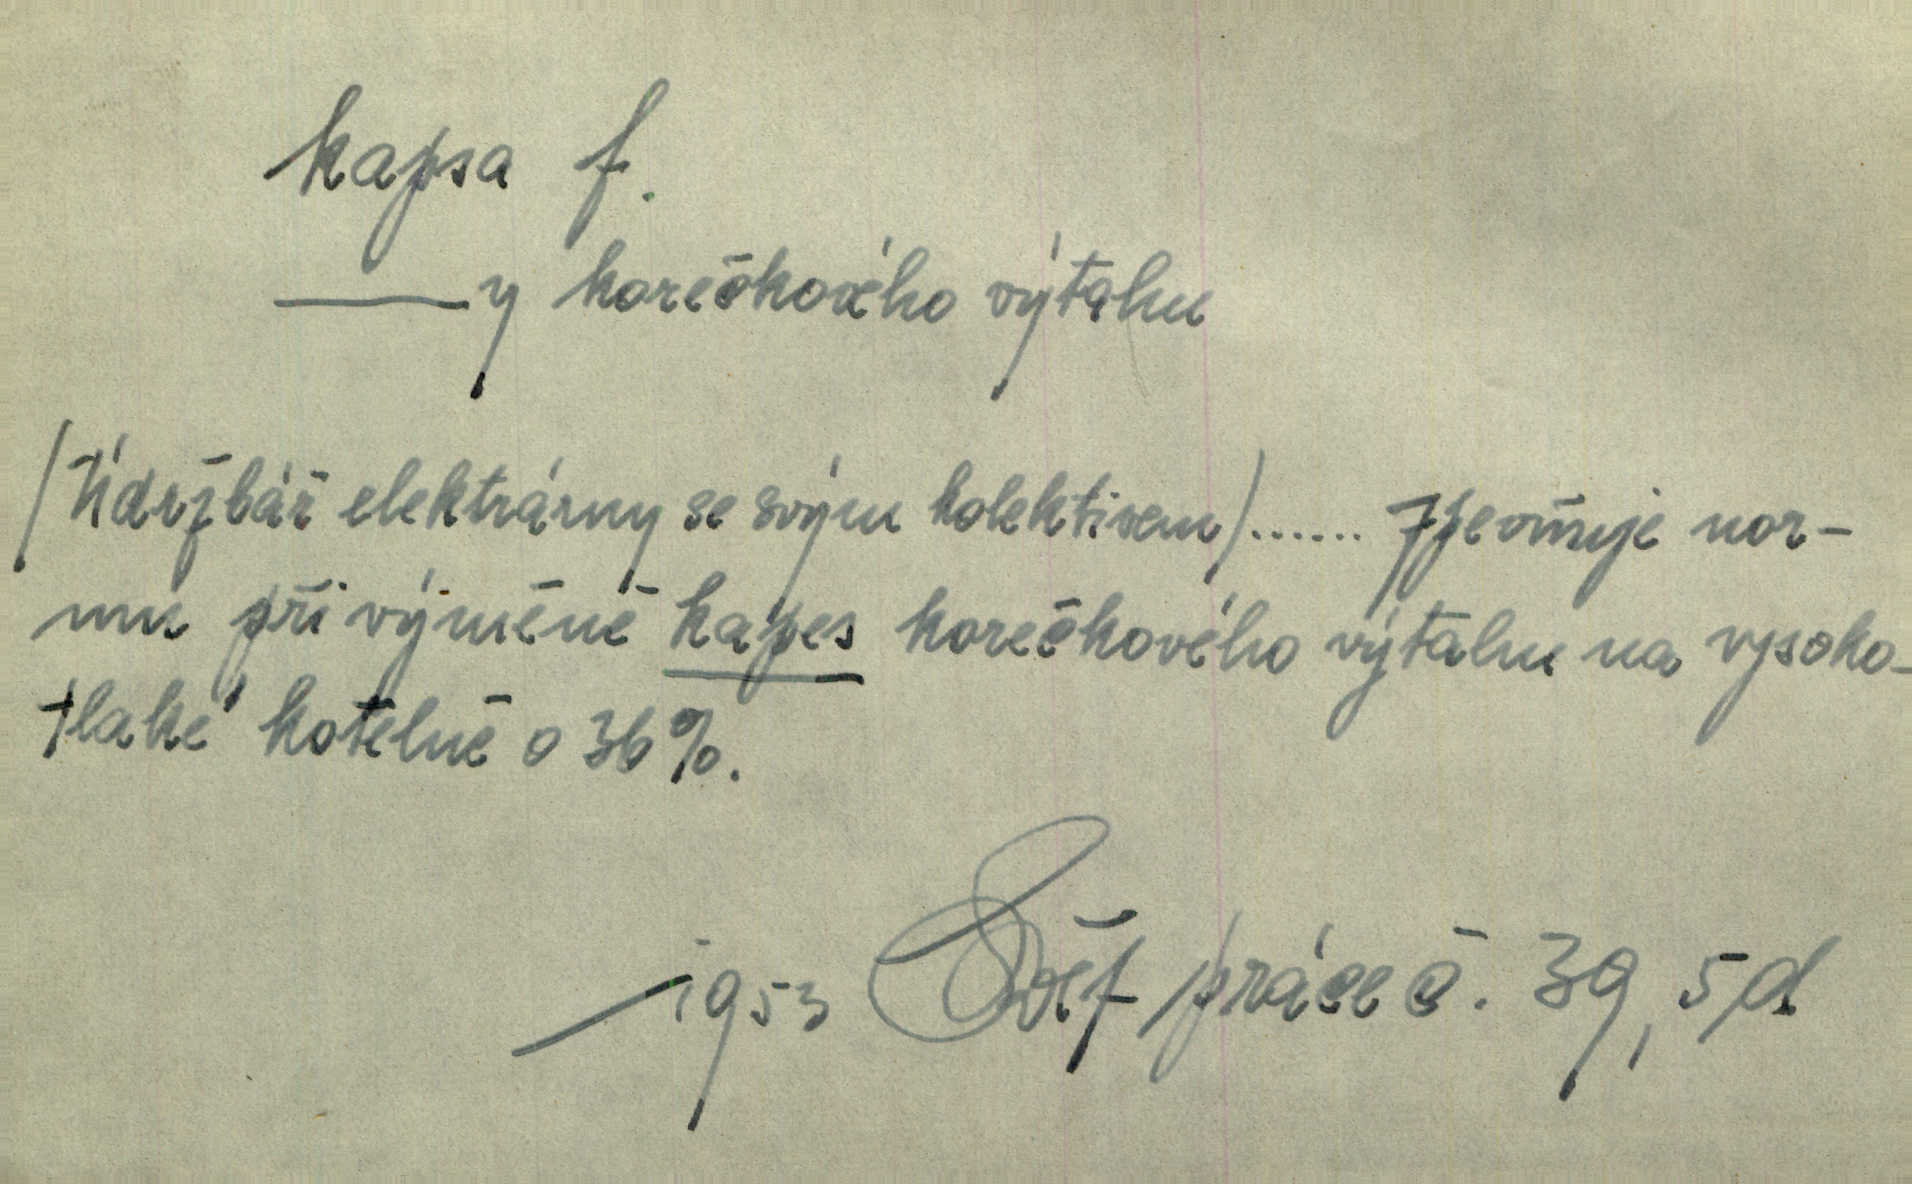 kapsa f.
——y korečkového výtahu
/Údržbář elektrárny se svým kolektivem/...... zpevňuje nor-
mu při výměně kapes korečkového výtahu na vysoko-
tlaké kotelně o 36%.
1953 Svět práce č. 39, 5d